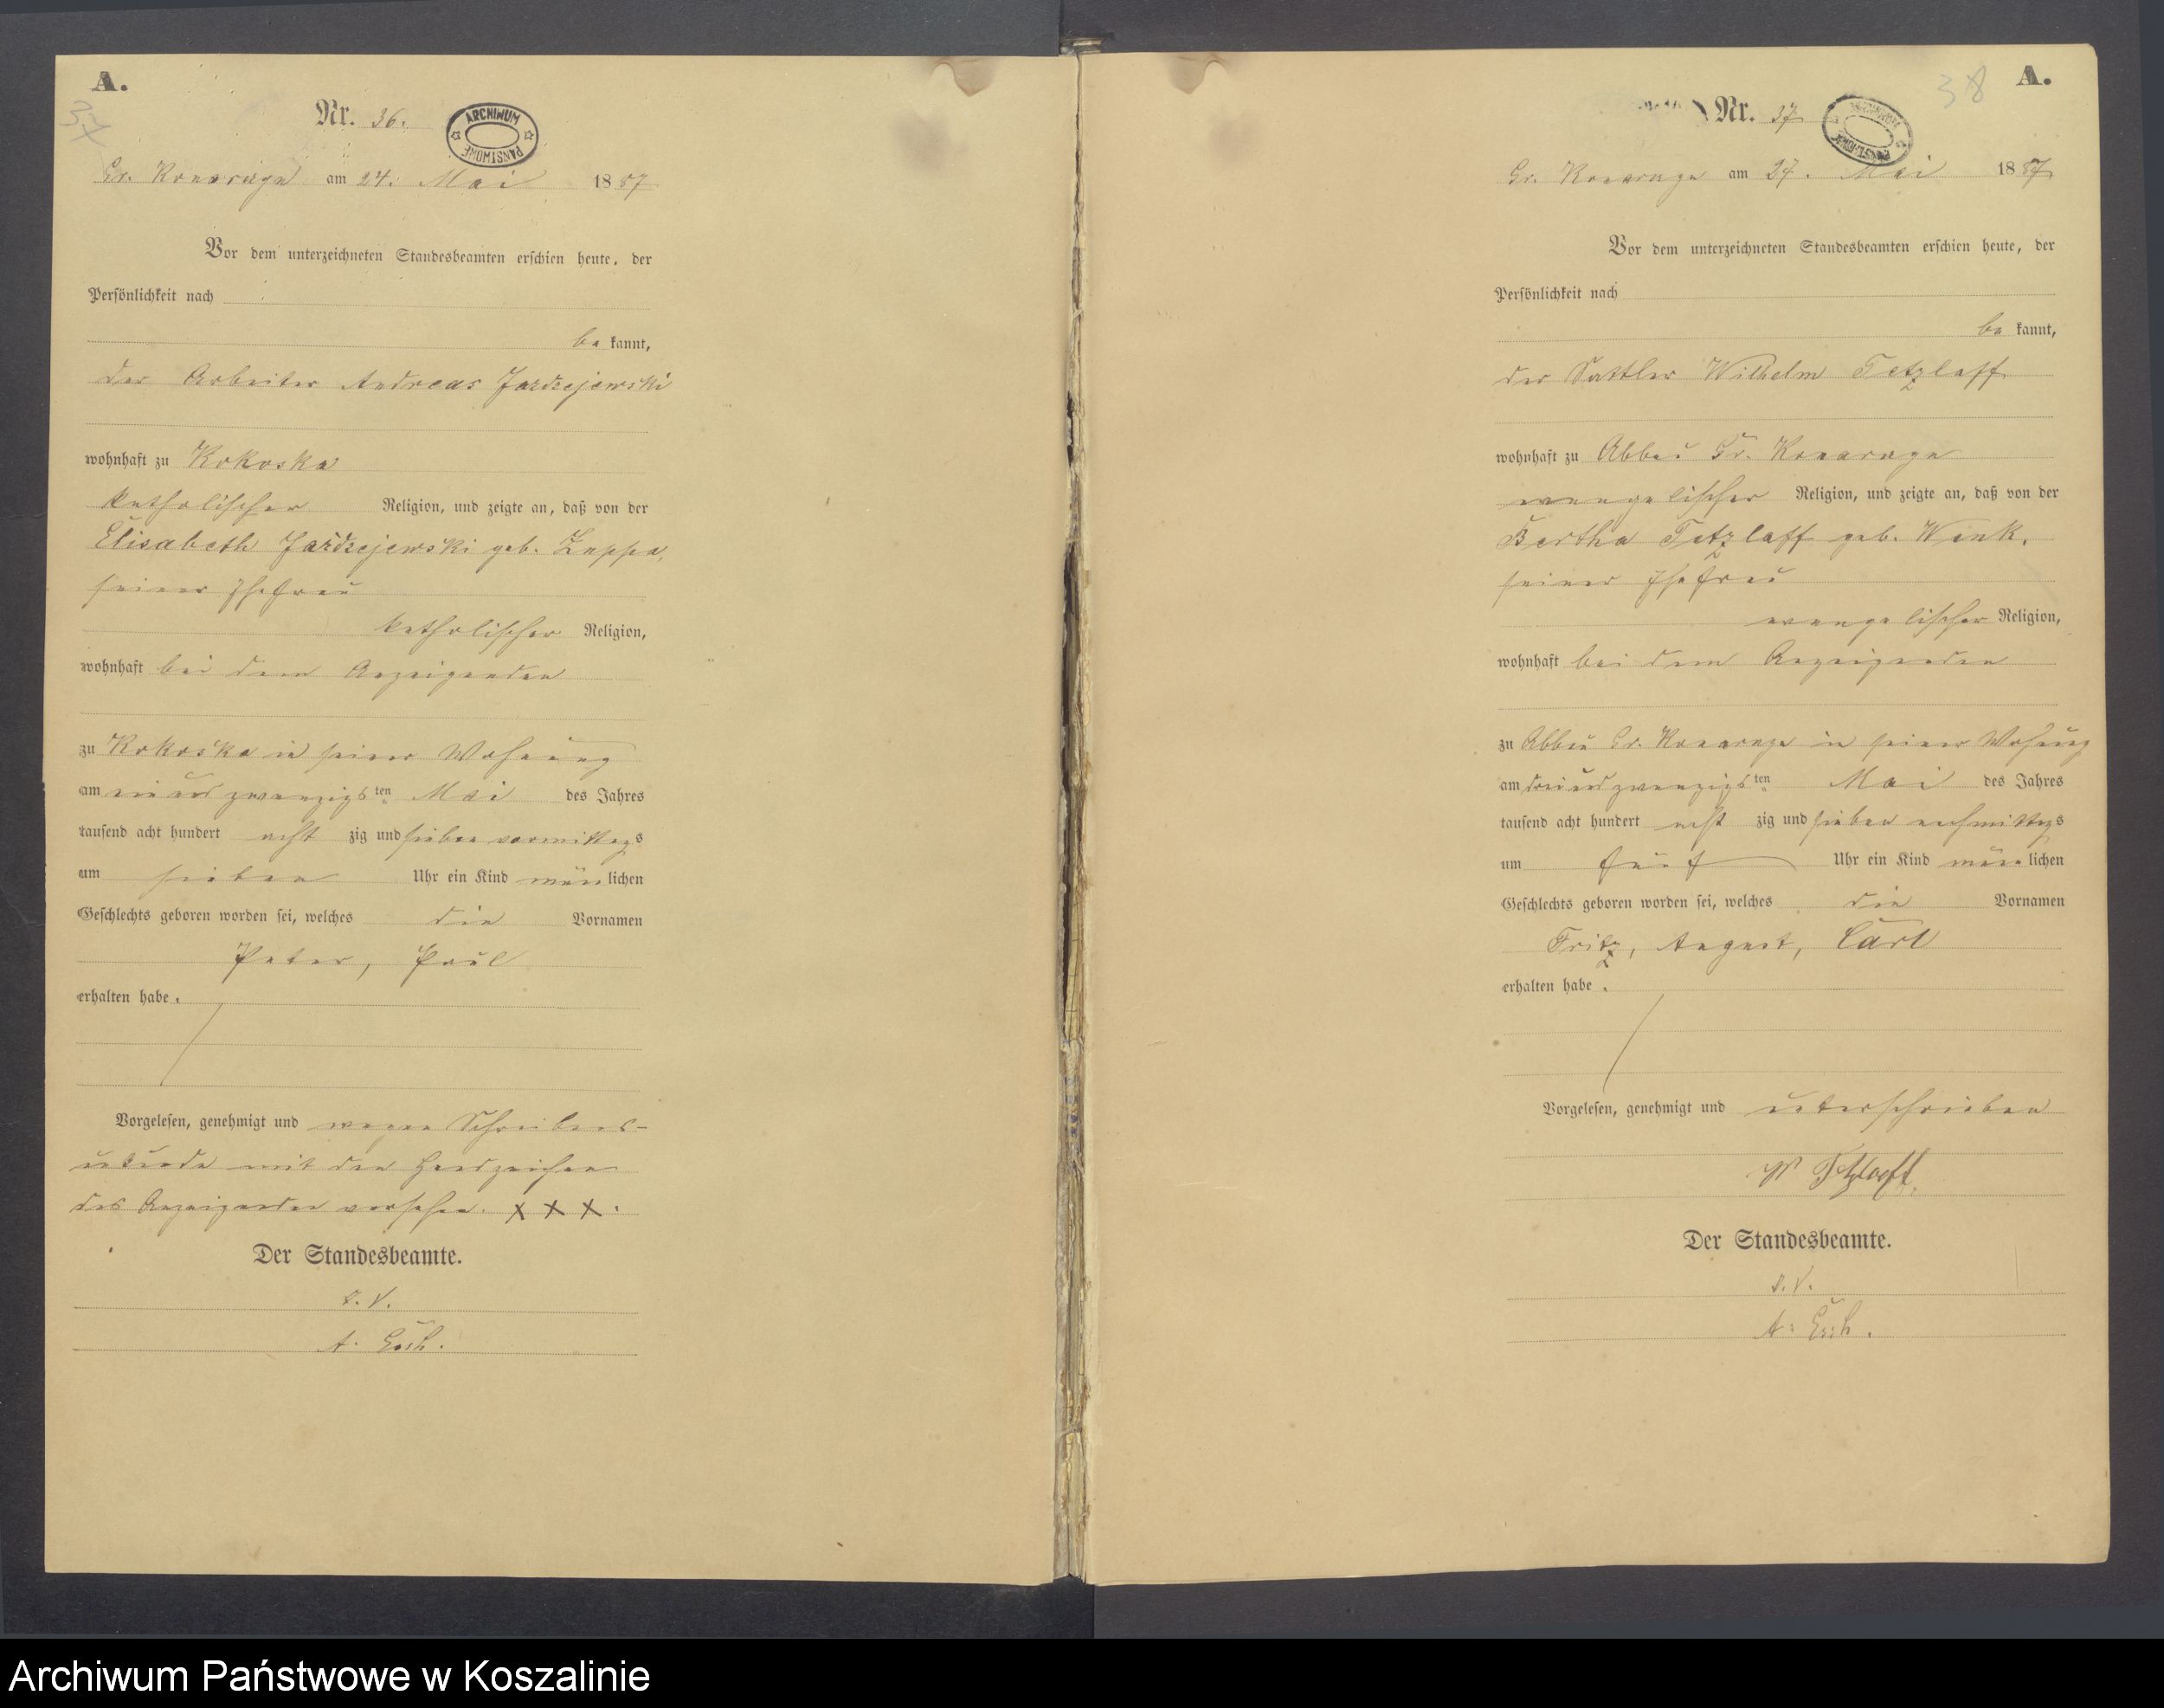 A.
37
Nr. 36.
ARCHIWUM PAŃSTWOWE
Gr. Konarczyn am 24. Mai 1887
Vor dem unterzeichneten Standesbeamten erschien heute, der
Persönlichkeit nach
be kannt,
der Arbeiter Andreas Jazdzejewski
wohnhaft zu Kokoska
katholischer Religion, und zeigte an, daß von der
Elisabeth Jazdzejewski geb. Zappa,
seiner Ehefrau
katholischer Religion,
wohnhaft bei dem Anzeigenden
zu Kokoska in seiner Wohnung
am ein und zwanzigsten Mai des Jahres
tausend acht hundert acht zig und sieben vormittags
um sieben Uhr ein Kind männlichen
Geschlechts geboren worden sei, welches die Vornamen
Peter, Paul
erhalten habe.
Vorgelesen, genehmigt und wegen Schreibens-
unkunde mit den Handzeichen
des Anzeigenden versehen. X X X.
Der Standesbeamte.
I. V.
A.
A.
38
Nr. 37
ARCHIWUM PAŃSTWOWE
Gr. Konarczyn am 27. Mai 1887
Vor dem unterzeichneten Standesbeamten erschien heute, der
Persönlichkeit nach
be kannt,
der Sattler Wilhelm Tetzlaff
wohnhaft zu Abbau Gr. Konarczyn
evangelischer Religion, und zeigte an, daß von der
Bertha Tetzlaff geb. Wenk.
seiner Ehefrau
evangelischer Religion,
wohnhaft bei dem Anzeigenden
zu Abbau Gr. Konarczyn in seiner Wohnung
am drei und zwanzigsten Mai des Jahres
tausend acht hundert acht zig und sieben nachmittags
um fünf Uhr ein Kind männlichen
Geschlechts geboren worden sei, welches die Vornamen
Fritz, August, Carl
erhalten habe.
Vorgelesen, genehmigt und unterschrieben
W Tetzlaff.
Der Standesbeamte.
I. V.
A.
Archiwum Państwowe w Koszalinie